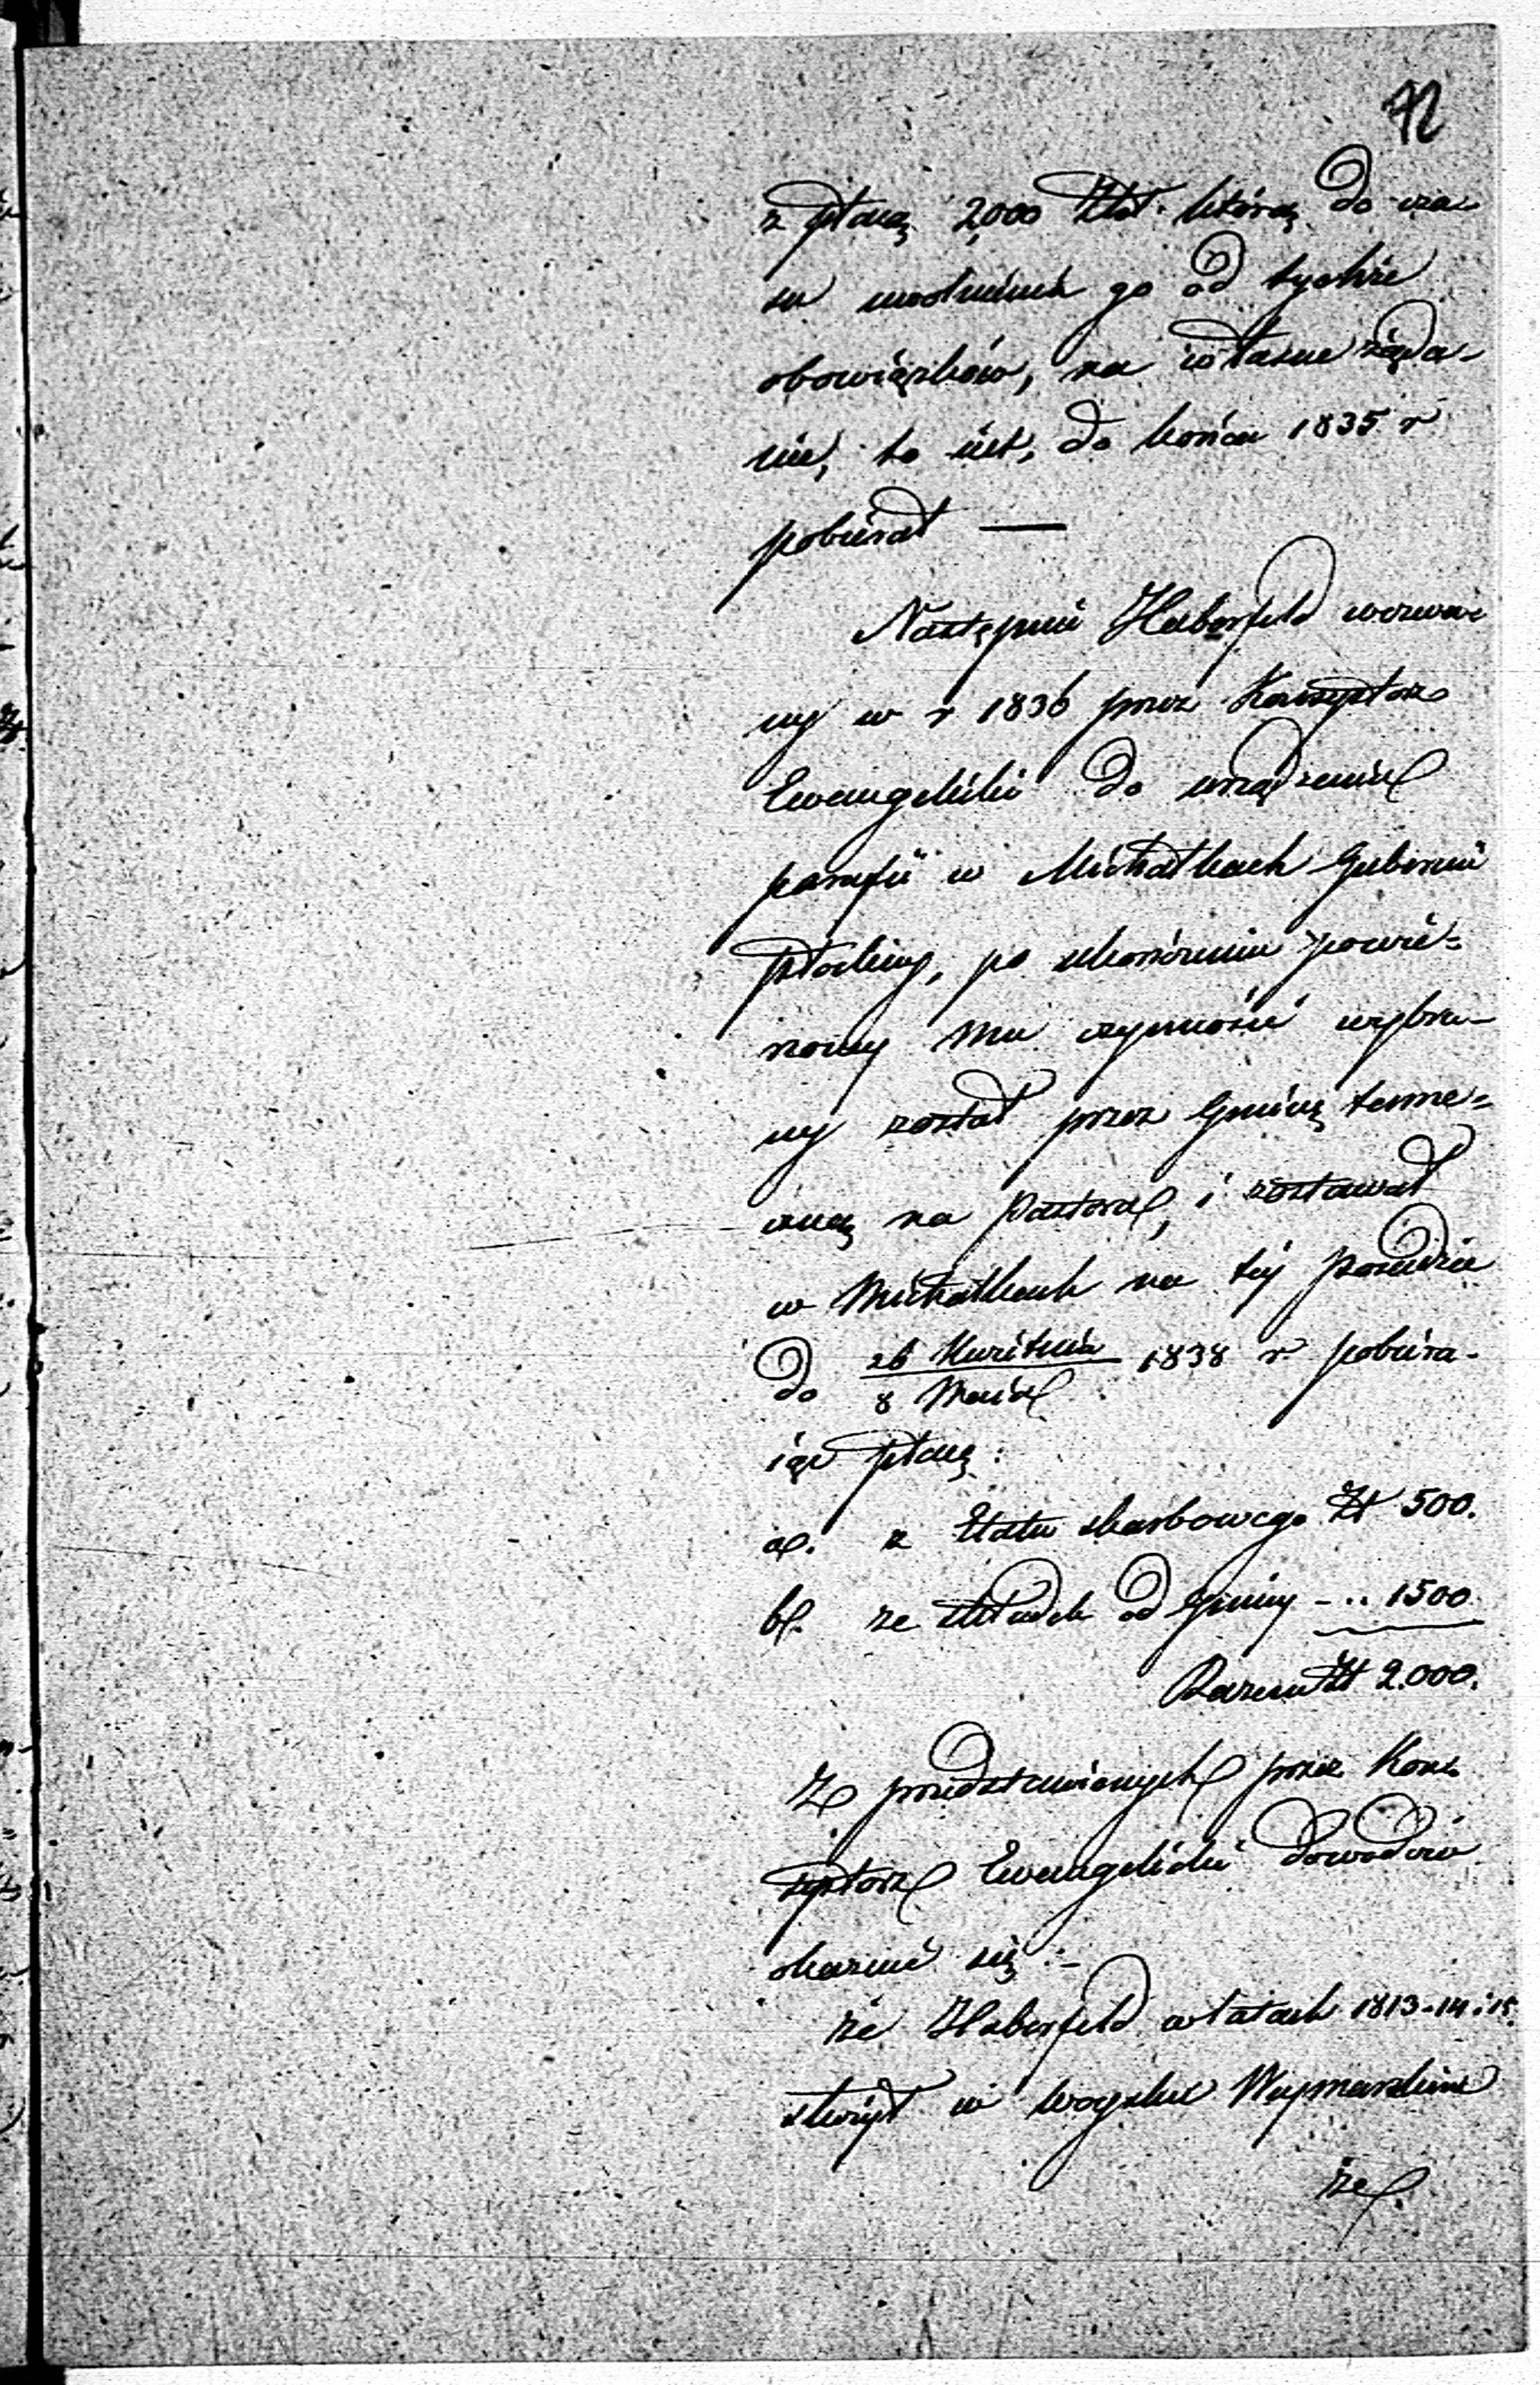 72
z płacą 2000 Złot. którą do cza-
su uwolnienia go od tychże
obowiązków, na własne żąda-
nie, to iest, do końca 1835 r
pobierał —
Następnie Haberfeld wezwa-
ny w r 1836 przez Konsystorz
Ewangelicki do urządzenia
parafii w Michałkach Gubernii
Płockiey, po ukończeniu powie=
rzoney mu czynności wybra-
ny został przez Gminę tamec=
zną na Pastora, i zostawał
w Michałkach na tej posadzie
do 26 Kwietnia / 8 Maia 1838 r pobiera-
iąc płacę:
a. z Etatu skarbowego Zł 500.
b. ze składek od Gminy - .. 1500
Razem Zł 2.000.
Z przedstawionych przez Kon-
systorz Ewangelicki dowodów
okazuie się :-
że Haberfeld w latach 1813-14 i 15.
służył w woysku Waymarskim
że